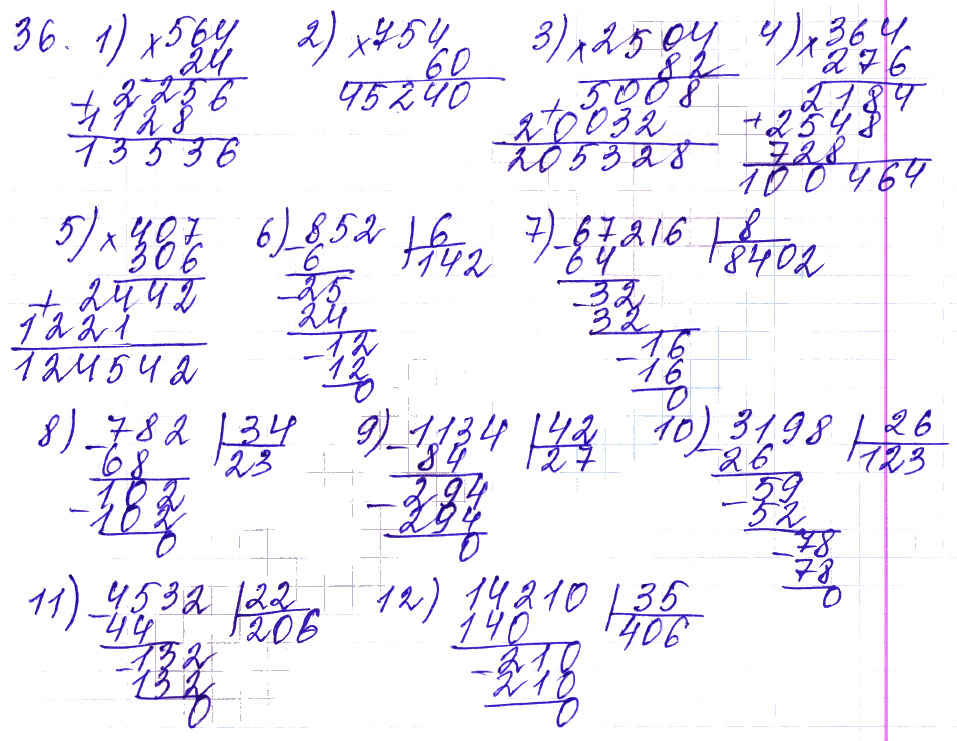 36. 1) ×564 2) ×754 3) ×2504 4) ×364
24 60 82 276
2256 45240 5008 2184
+1128 +20032 +2548
13536 205328 728
100464
5) ×407 6) -852 |6 7) -67216 |8
306 6 142 64 8402
+2442 -25 -32
1221 24 32
124542 -12 -16
12 16
0 0
8) -782 |34 9) -1134 |42 10) -3198 |26
68 23 84 27 26 123
-102 -294 -59
102 294 52
0 0 -78
78
0
11) -4532 |22 12) 14210 |35
44 206 140 406
-132 -210
132 210
0 0